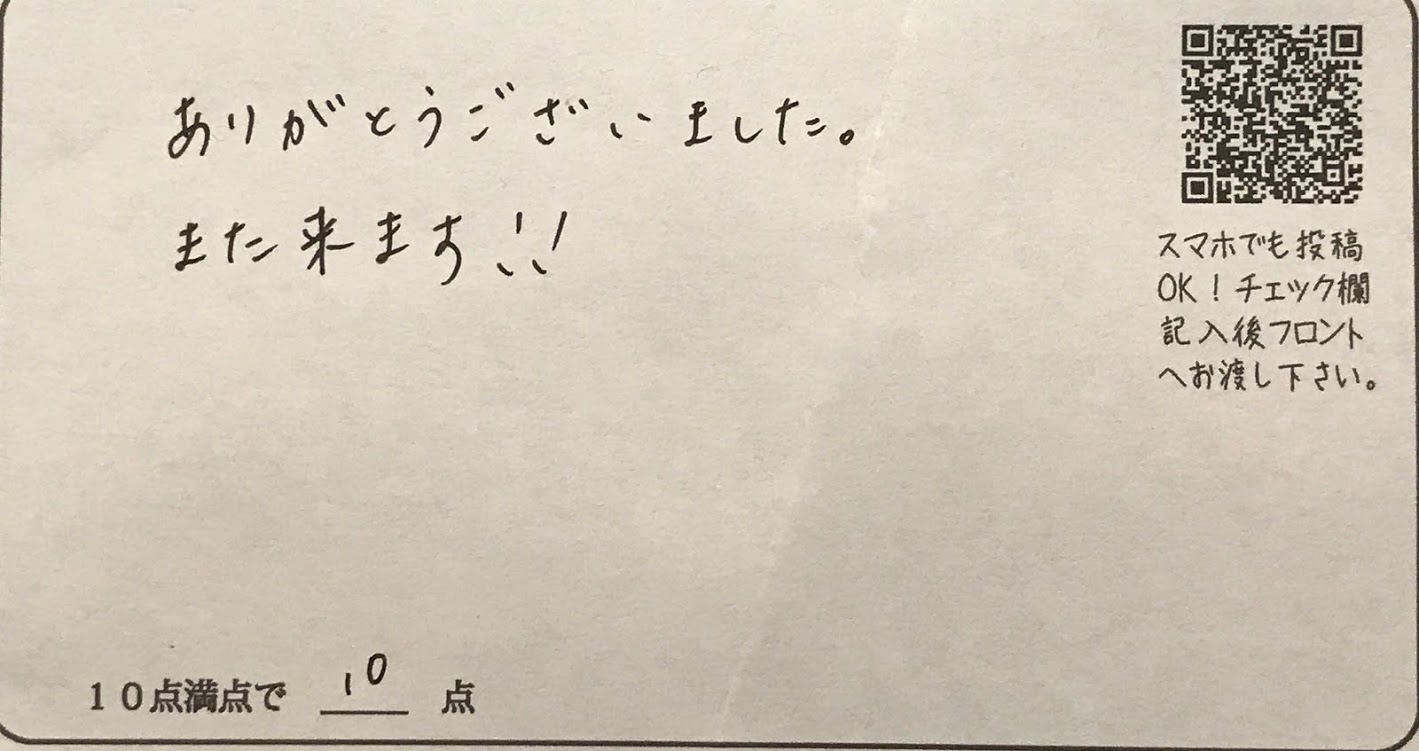 ありがとうございました。
また来ます!!
スマホでも投稿
OK!チェック欄
記入後フロント
へお渡し下さい。
10点満点で 10 点